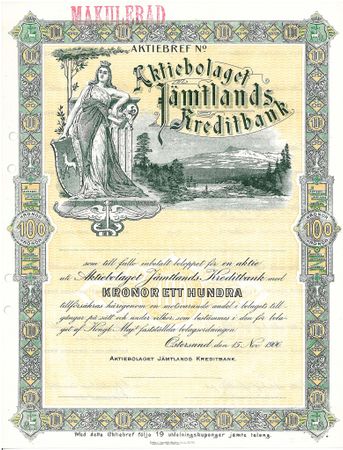 MAKULERAD
AKTIEBREF Nº
Aktiebolaget
Jämtlands
Kreditbank
100
100
som till fullo inbetalt beloppet för en aktie
uti Aktiebolaget Jämtlands Kreditbank med
KRONOR ETT HUNDRA
tillförsäkras häri­genom en motsvarande andel i bolagets till-
gångar på sätt och under vilkor, som bestämmes i den för bola-
get af Kongl. Maj:t fastställda bolagsordningen.
Östersund, den 15 Nov. 1906.
AKTIEBOLAGET JÄMTLANDS KREDITBANK.
Med detta Aktiebref följa 19 utdelningskuponger jämte talong.